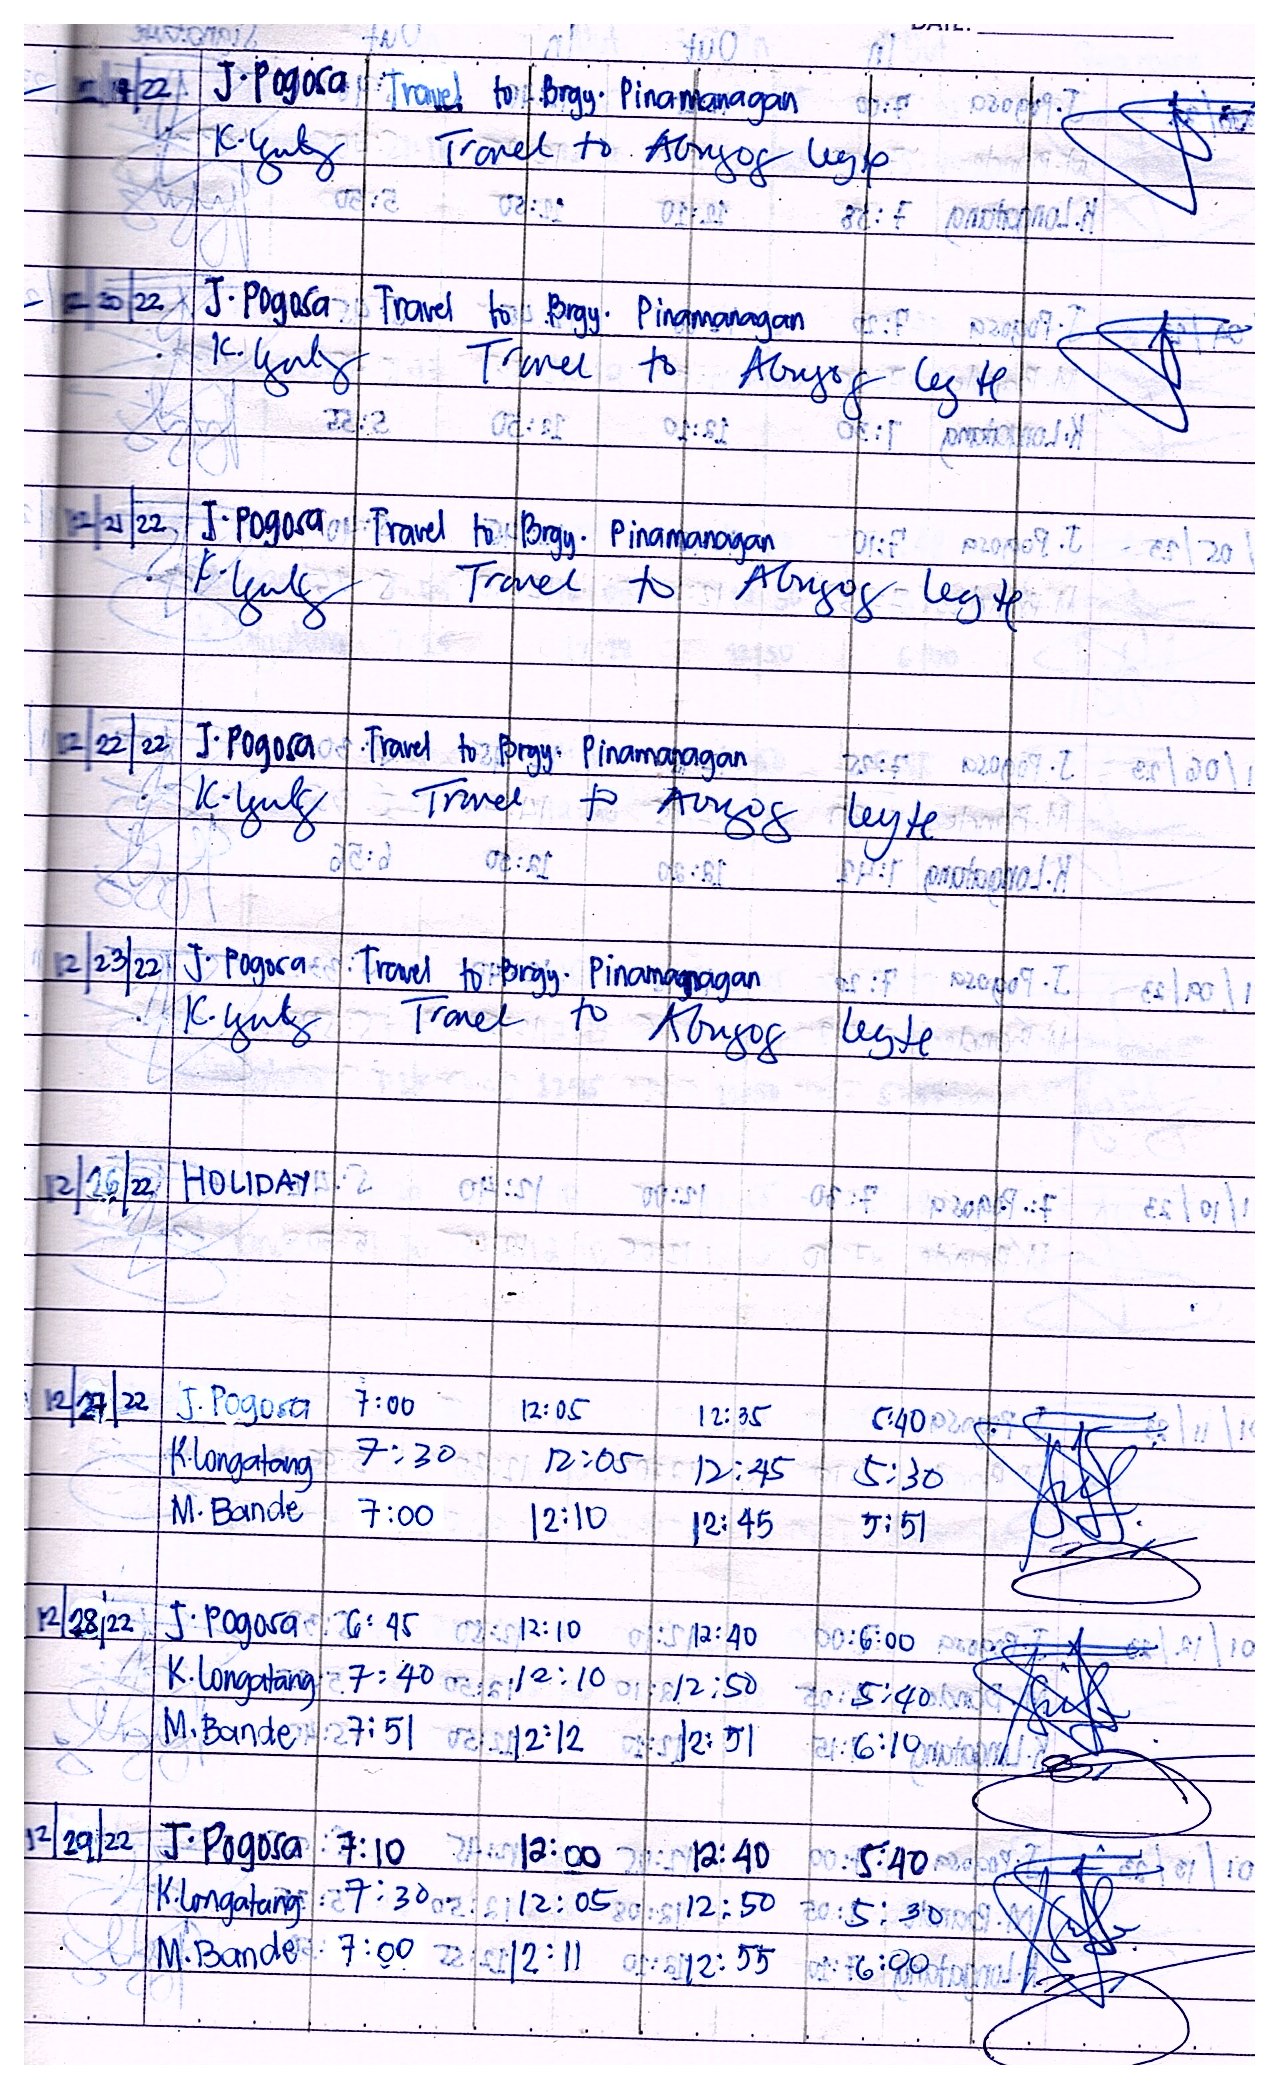 DATE:
12/19/22 J. Pogosa Travel to Brgy. Pinamanagan
K. Travel to Abuyog Leyte
12/20/22 J. Pogosa Travel to Brgy. Pinamanagan
K. Travel to Abuyog Leyte
12/21/22 J. Pogosa Travel to Brgy. Pinamanagan
K. Travel to Abuyog Leyte
12/22/22 J. Pogosa Travel to Brgy. Pinamanagan
K. Travel to Abuyog Leyte
12/23/22 J. Pogosa Travel to Brgy. Pinamanagan
K. Travel to Abuyog Leyte
12/26/22 HOLIDAY
12/27/22 J. Pogosa 7:00 12:05 12:35 5:40
K.Longatang 7:30 12:05 12:45 5:30
M. Bande 7:00 12:10 12:45 5:51
12/28/22 J. Pogosa 6:45 12:10 12:40 6:00
K.Longatang 7:40 12:10 12:50 5:40
M. Bande 7:51 12:12 12:51 6:10
12/29/22 J. Pogosa 7:10 12:00 12:40 5:40
K.Longatang 7:30 12:05 12:50 5:30
M. Bande 7:00 12:11 12:55 6:00